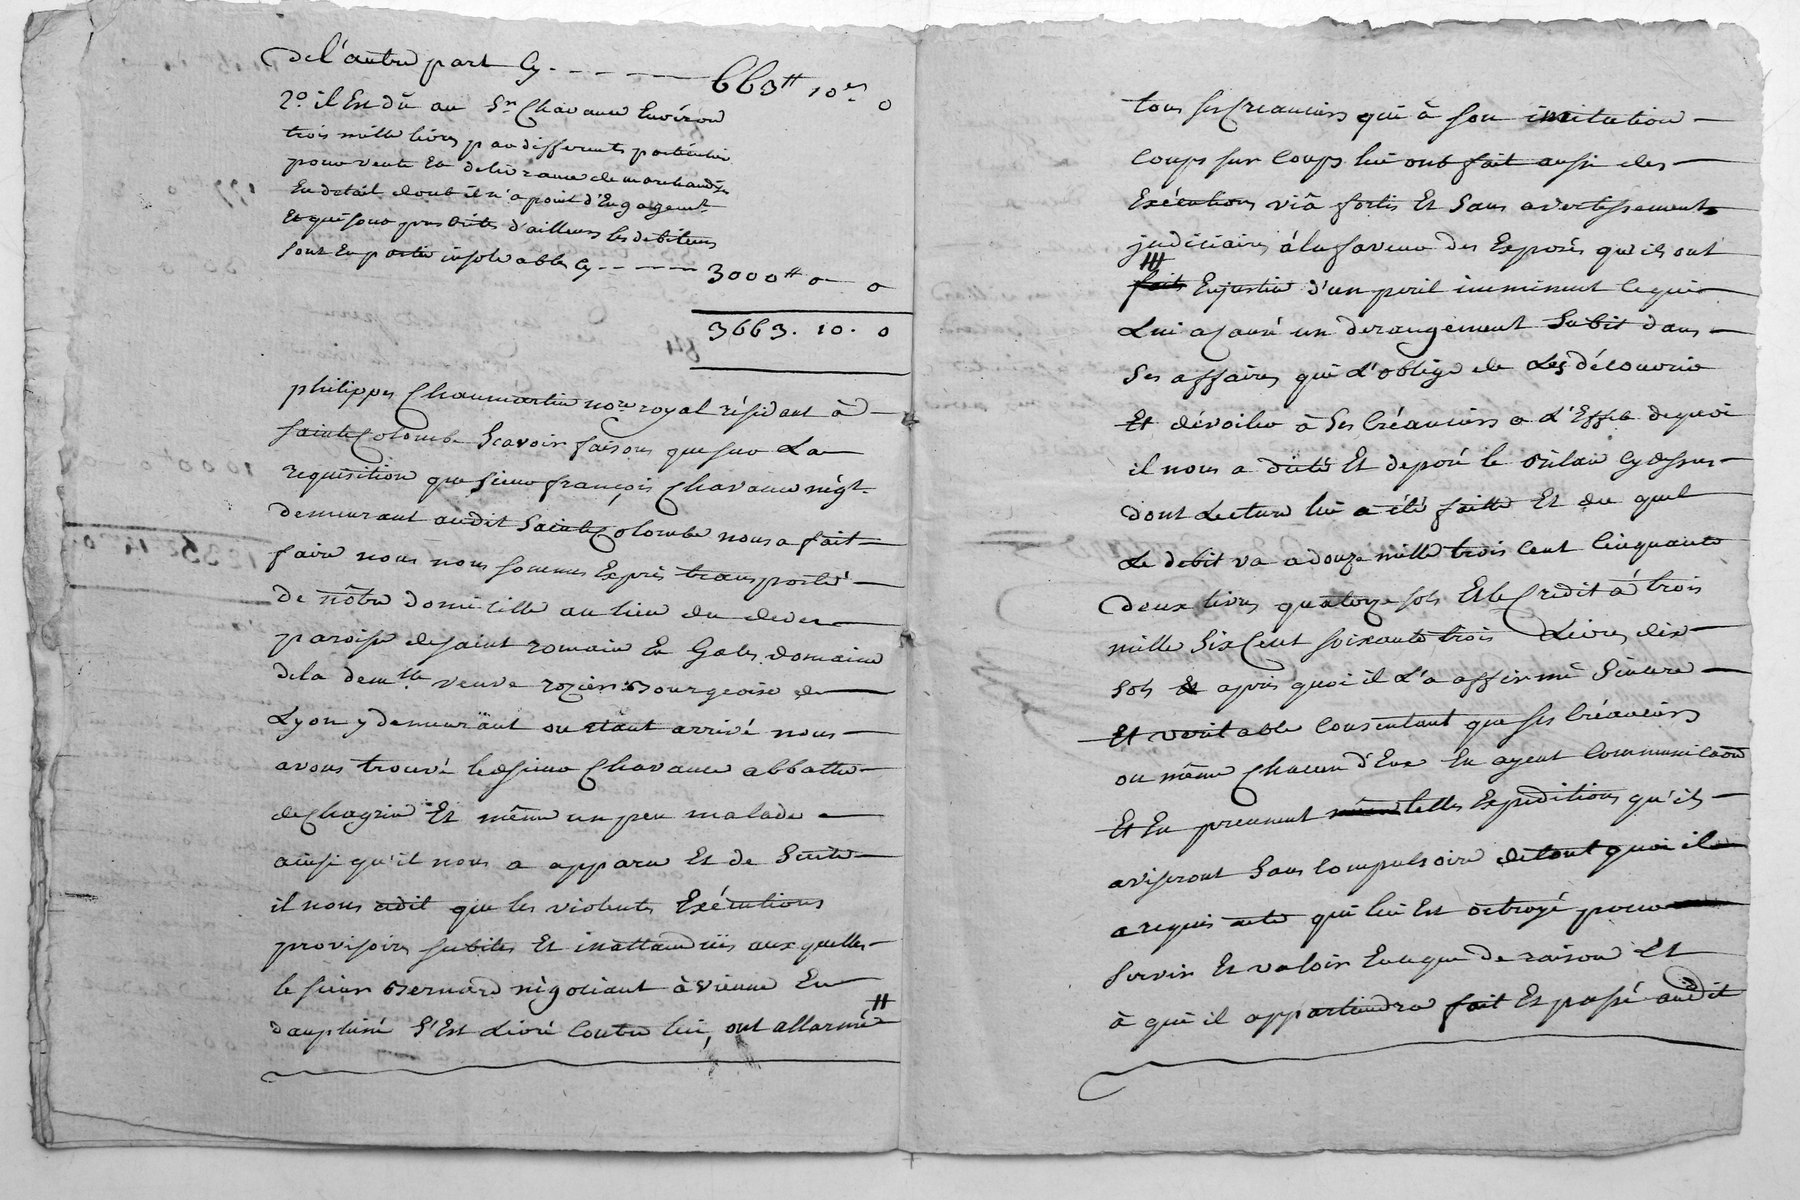 de l'autre part Cy - - - - — 663ᵗᵗ 10ˢ 0
2º il Est dû au Sʳ Chavance Environ
trois mille livres par differents particuliers
pour vente Et delivrance de marchandises
En detail dont il n'a point d'Engagemᵗ
Et qui sont d'ailleurs les debiteurs
sont En partie insolvables Cy - - - - 3000ᵗᵗ 0 0
3663. 10. 0
philippes Chaumartin noʳᵉ royal résidant à
sainte Colombe Scavoir faisons que sur La
requisition que sieur françois Chavance négt.
demeurant audit Sainte Colombe nous a fait
faire nous nous sommes Exprès transporté
de nôtre domicille au lieu du
paroisse de saint romain En Gales domaine
de la demᵉˡˡᵉ veuve rozier Bourgeoise de
Lyon y demeurant ou étant arrivé nous
avons trouvé ledsieur Chavance abbattu
de Chagrin Et même un peu malade
ainsi qu'il nous a apparu Et de Suite
il nous a dit que les violentes Exécutions
provisoires subites Et inattanduës auxquelles
le sieur Bernard négotiant à vienne En
dauphiné S'Est Livré Contre lui, ont allarmé
tous ses Creanciers qui à son imitation
coups sur coups lui ont fait aussi des
Exécutions viâ fortis Et Sans avertissements
judiciaires à la faveur des Exposés qu'ils ont
fait En justice d'un peril imminent Ce qui
Lui a causé un derangement Subit dans
Ses affaires qui L'oblige de Les découvrir
Et dévoiler à Ses Créanciers a L'Effet de quoi
il nous a dicté Et deposé le bilan Cy dessus
dont Lecture lui a été faitte Et du quel
Le debit va a douze mille trois Cent Cinquante
deux livres quatorze sols Et le Credit à trois
mille Six Cent soixante trois Livres dix
sols Et après quoi il L'a affirmé Sincere
Et veritable Consentant que ses Créanciers
ou même Chacun d'Eux En ayent Communicaõn
Et En prennent telles Expeditions qu'ils
aviseront Sans Compulsoire de tout quoi il
a requis acte qui lui Est octroyé pour
servir Et valoir En ce que de raison Et
à qui il appartiendra fait Et passé audit